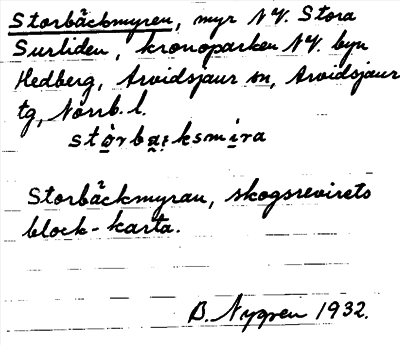 Storbäckmyren, myr NV. Stora
Surliden, kronoparken NV. byn
Hedberg, Arvidsjaur sn, Arvidsjaur
tg, Norrb. l.
Storbäckmyrau, skogsrevirets
block-karta.
B. Nygren 1932.